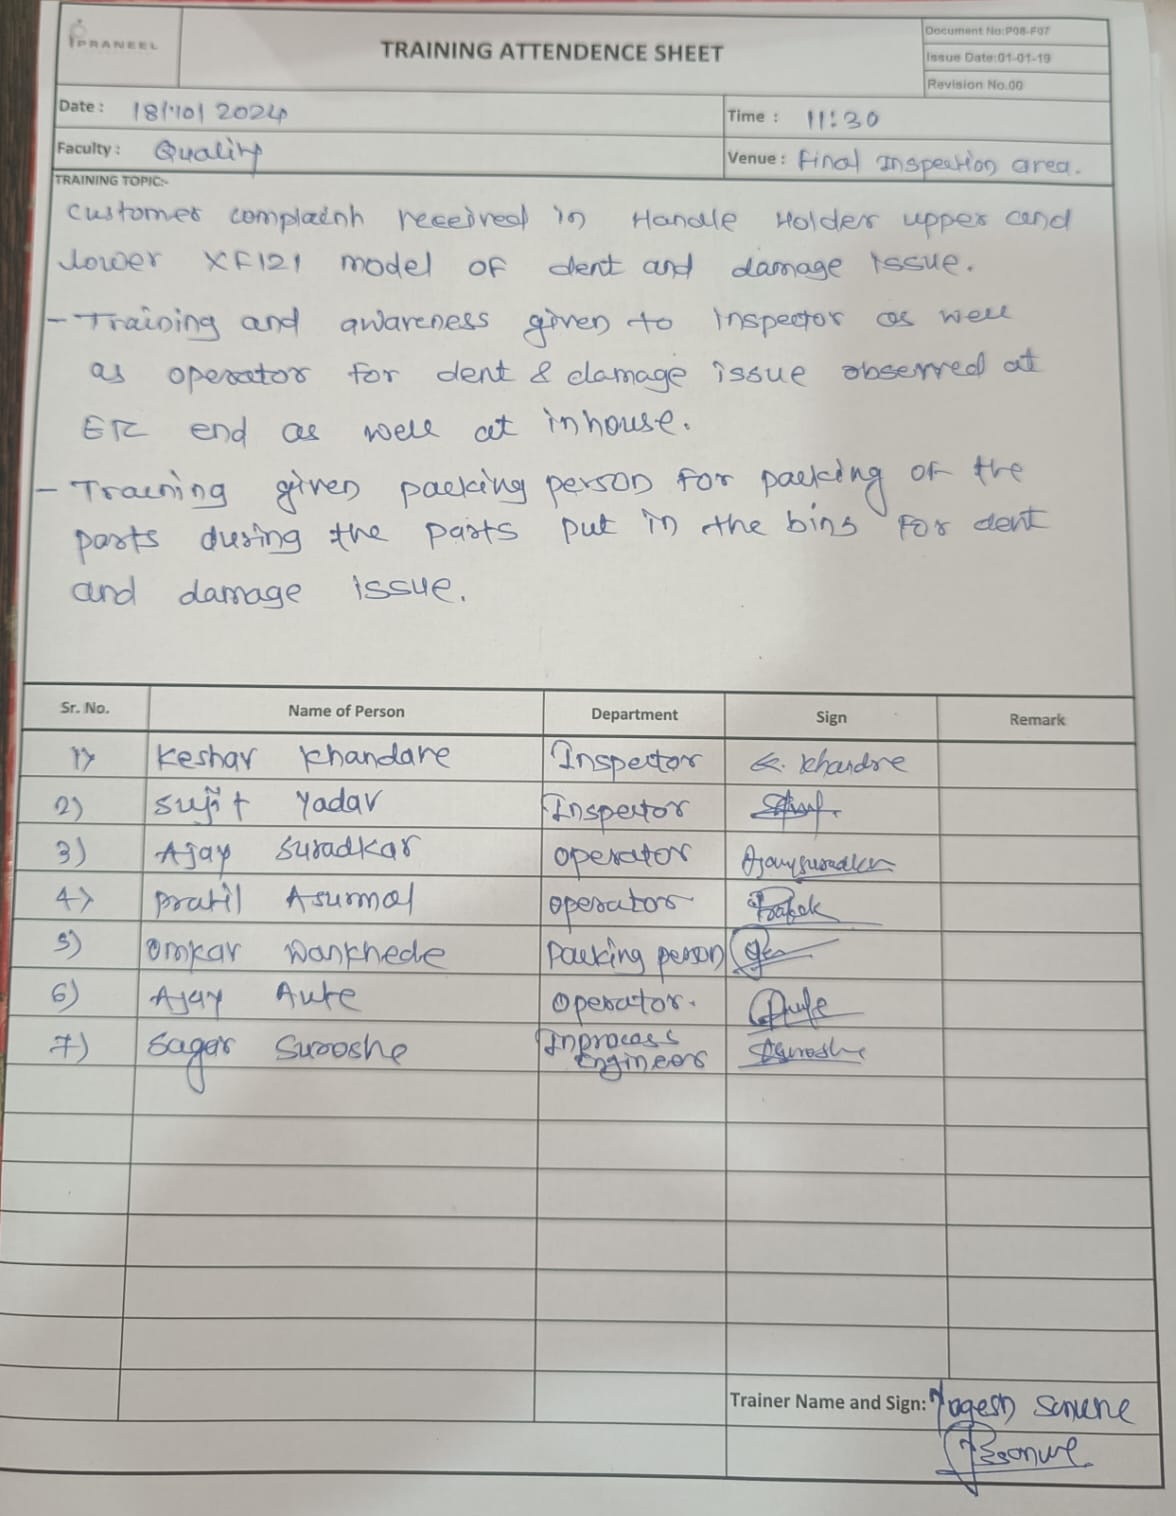 PRANEEL
TRAINING ATTENDENCE SHEET
Document No:P08-F07
Issue Date:01-01-19
Revision No.00
Date : 18/10/2024
Time : 11:30
Faculty : Quality
Venue : Final Inspection area.
TRAINING TOPIC:-
Customer complainh received in Handle Holder upper and
lower XF121 model of dent and damage issue.
- Training and awareness given to inspector as well
as operator for dent & damage issue observed at
end as well at inhouse.
- Training given packing person for packing of the
parts during the parts put in the bins for dent
and damage issue.
Sr. No. Name of Person Department Sign Remark
1) Keshav Khandare Inspector K. Khandre
2) Sujit Yadav Inspector
3) Ajay Suradkar operator Ajaysuradkar
4) Asurmol operator
5) Omkar Wankhede Packing person
6) Ajay Aute operator. Aute
7) Sagar Suroshe Inprocess Engineer Suroshe
Trainer Name and Sign: Yogesh